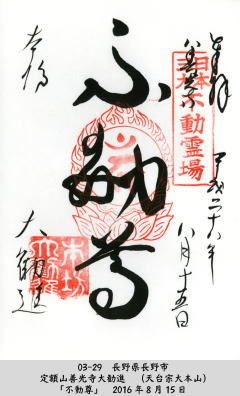 奉拝
日本
不動霊場
平成二十八年
八月十五日
不動尊
本坊
大勧進
03-29 長野県長野市
定額山善光寺大勧進 (天台宗大本山)
「不動尊」 2016年8月15日